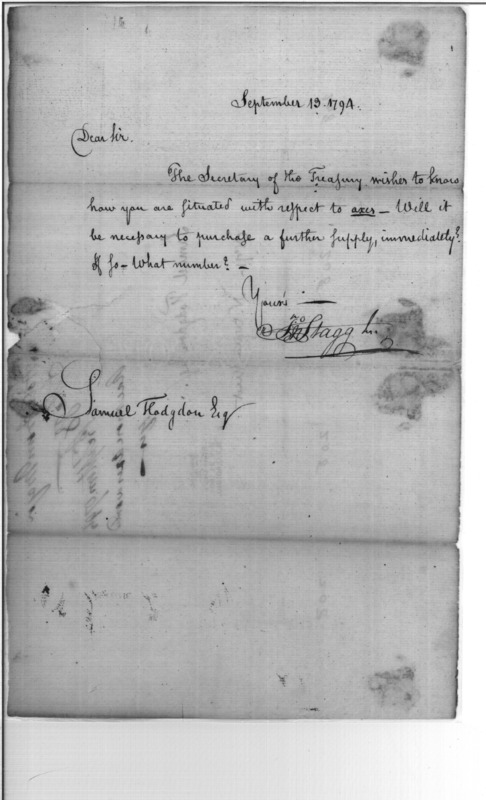 September 13. 1794.
Dear Sir.
The Secretary of the Treasury wishes to know
how you are situated with respect to axes – Will it
be necessary to purchase a further supply, immediately?
If so – What number? –
Yours —
Jno Stagg Jr.
Samuel Hodgdon Esq